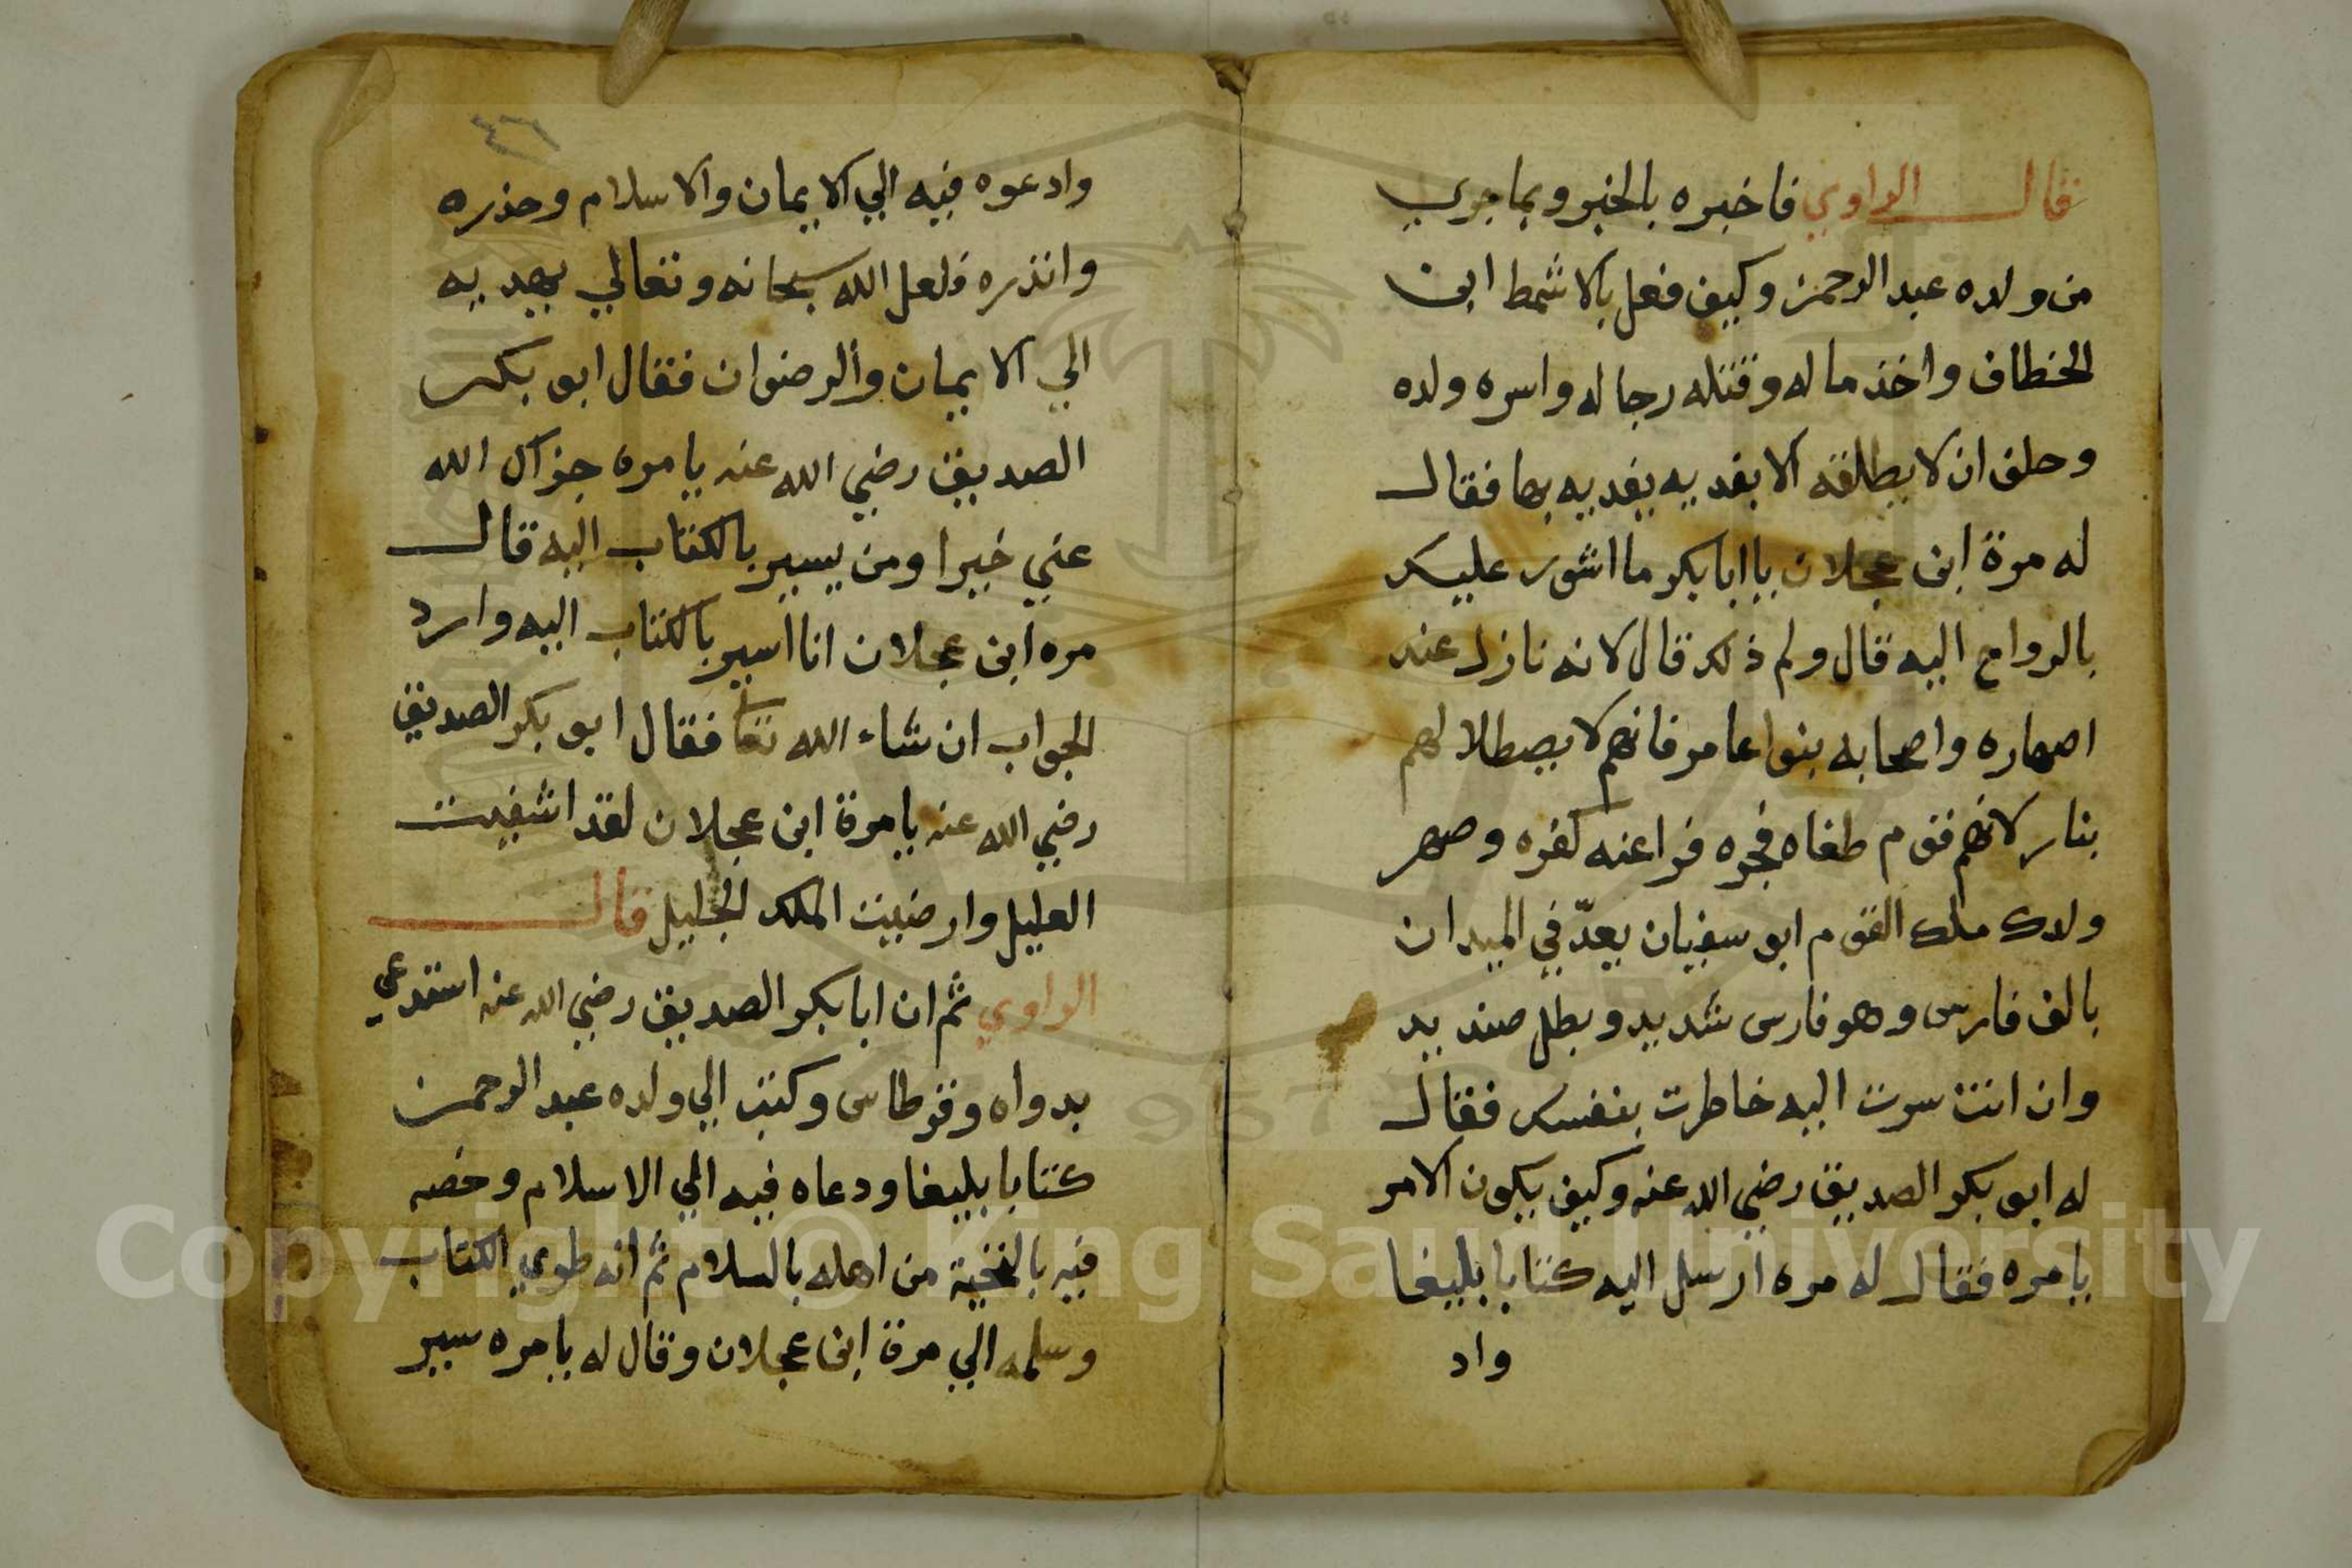 قال الراوي فاخبره بالخبر وبما جري
من ولده عبد الرحمن وكيف فعل بالاشمط ابن
الخطاف واخذ ماله وقتله رجاله واسره ولده
وحلف ان لا يطلقه الا بفديه يفديه بها فقال
له مرة ابن عجلان يا ابا بكر ما اشور عليك
بالرواح اليه قال ولم ذلك قال لانه نازل عند
اصهاره واصحابه بنوا عامر فانهم لا يصطلا لهم
بنار لانهم قوم طغاه فجره فراعنه كفره وصهر
ولدك ملك القوم ابو سفيان يعدّ في الميدان
بالف فارس وهو فارس شديد وبطل صنديد
وان انت سرت اليه خاطرت بنفسك فقال
له ابو بكر الصديق رضي الله عنه وكيف يكون الامر
يا مره فقال له مره ارسل اليه كتابا بليغا
واد
٤٦
وادعوه فيه الي الايمان والاسلام وحذره
وانذره فلعل الله سبحانه وتعالي يهديه
الي الايمان والرضوان فقال ابو بكر
الصديق رضي الله عنه يا مره جزاك الله
عني خيرا ومن يسير بالكتاب اليه قال
مره ابن عجلان انا اسير بالكتاب اليه وارد
الجواب ان شاء الله تعا فقال ابو بكر الصديق
رضي الله عنه يا مرة ابن عجلان لقد اشفيت
العليل وارضيت الملك الجليل قال
الراوي ثم ان ابا بكر الصديق رضي الله عنه استدعي
بدواه وقرطاس وكتب الي ولده عبد الرحمن
كتابا بليغا ودعاه فيه الي الاسلام وخصه
فيه بالتحية من اهله بالسلام ثم انه طوي الكتاب
وسلمه الي مرة ابن عجلان وقال له يا مره سير
Copyright © King Saud University
1957